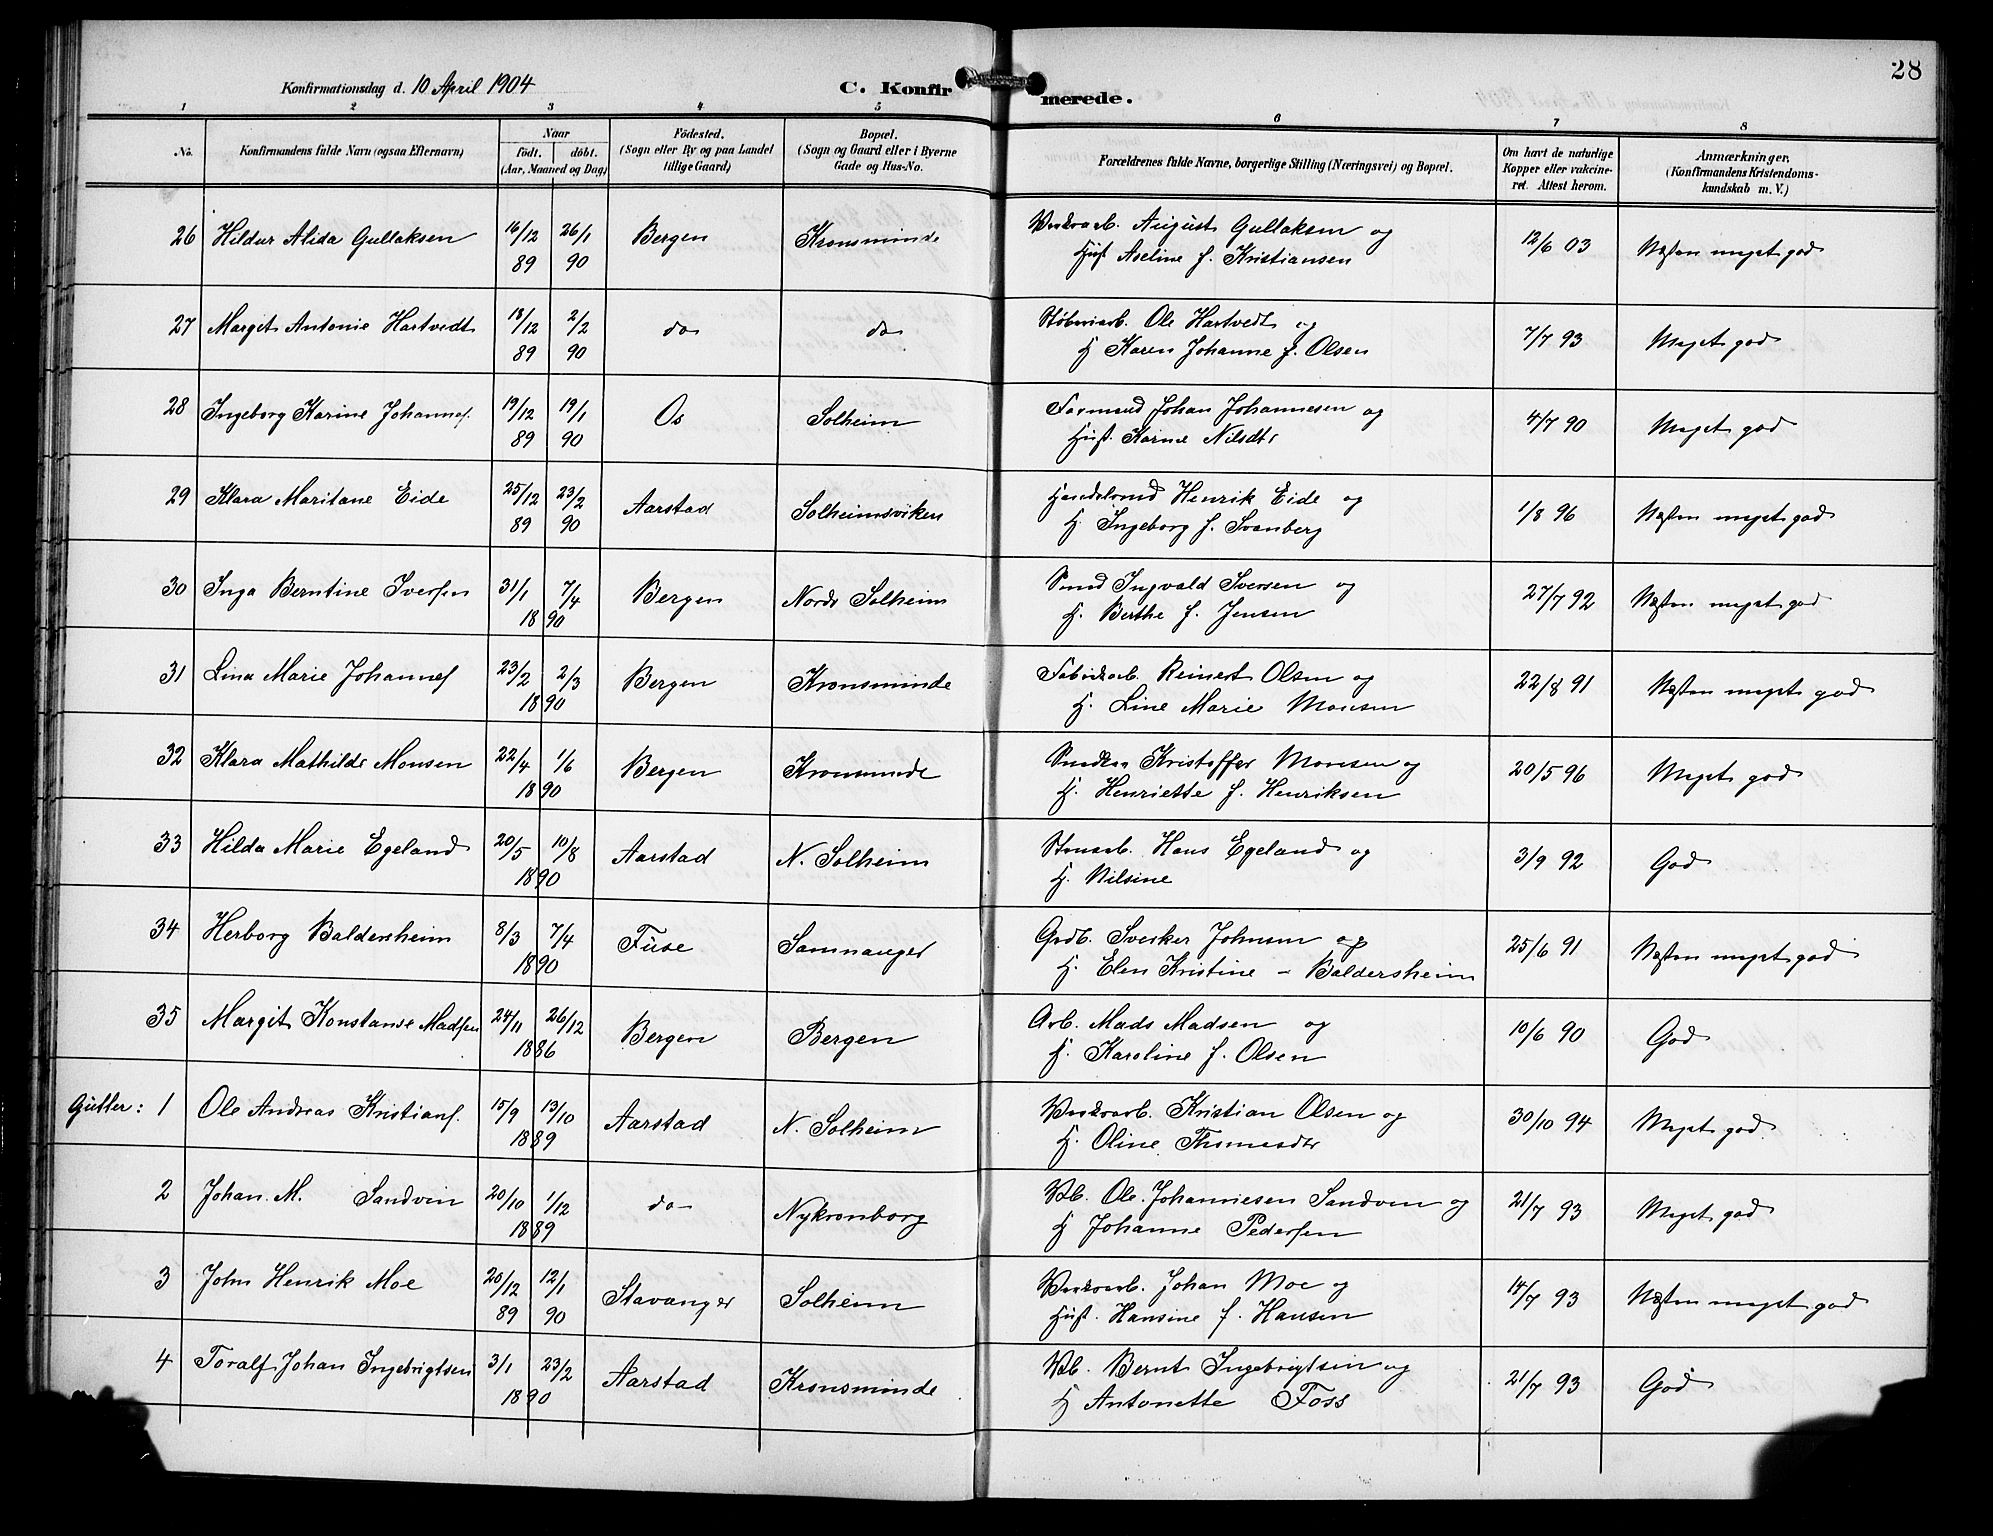 28
Konfirmationsdag d. 10 April 1904
C. Konfirmerede.
1 2 3 4 5 6 7 8
No. Konfirmandens fulde Navn (ogsaa Efternavn) Naar født. døbt. (Aar, Maaned og Dag) Fødested. (Sogn eller By og paa Landet tillige Gaard) Bopæl. (Sogn og Gaard eller i Byerne Gade og Hus-No. Forældrenes fulde Navne, borgerlige Stilling (Næringsvei) og Bopæl. Om havt de naturlige Kopper eller vakcineret. Attest herom. Anmærkninger. (Konfirmandens Kristendomskundskab m. V.)
26 Hildur Alida Gullaksen 16/12 89 26/1 90 Bergen Kronsminde August Gullaksen og 12/6 03 Næsten meget god
Hust Aseline f. Kristiansen
27 Margit Antonie Hartvedt 18/12 89 2/2 90 do do Støberiarb. Ole Hartvedt og 7/7 93 Meget god
H Karen Johanne f. Olsen
28 Ingeborg Karine Johannes. 19/12 89 19/1 90 Os Solheim Formand Johan Johannesen og 4/7 90 Meget god
Hust. Karine Nilsdtr
29 Klara Maritane Eide 25/12 89 23/2 90 Aarstad Solheimsviken Henrik Eide og 1/8 96 Næsten meget god
H. Ingeborg f. Svanberg
30 Inga Berntine Iversen 31/1 7/4 1890 Bergen Nordr Solheim Smed Ingvald Iversen og 27/7 92 Næsten meget god
H. Berthe f. Jensen
31 Lina Marie Johannes 23/2 2/3 1890 Bergen Kronsminde Reinert Olsen og 22/8 91 Næsten meget god
H. Line Marie Monsen
32 Klara Mathilde Monsen 22/4 1/6 1890 Bergen Kronsminde Kristoffer Monsen og 20/5 96 Meget god
H. Henriette f. Henriksen
33 Hilda Marie Egeland 20/5 10/8 1890 Aarstad N. Solheim Stenarb. Hans Egeland og 3/9 92 God
H. Nilsine
34 Herborg Baldersheim 8/3 7/4 1890 Fuse Samnanger Grdb. Sverker Johnsen og 25/6 91 Næsten meget god
H. Elen Kristine - Baldersheim
35 Margit Konstanse Madsen 24/11 26/12 1886 Bergen Bergen Arb. Mads Madsen og 10/6 90 God
H. Karoline f. Olsen
Gutter: 1 Ole Andreas Kristians. 15/9 13/10 1889 Aarstad N. Solheim Kristian Olsen og 30/10 94 Meget god
H. Oline Thomasdtr
2 Johan. M. Sandvin 20/10 1/12 1889 do Nykronborg Vb. Ole Johannesen Sandven og 21/7 93 Meget god
H Johanne Pedersen
3 John Henrik Moe 20/12 89 12/1 90 Stavanger Solheim Johan Moe og 14/7 93 Næsten meget god
Hust. Hansine f. Hansen
4 Toralf Johan Ingebrigtsen 3/1 23/2 1890 Aarstad Kronsminde Vb. Bernt Ingebrigtsen og 21/7 93 God
H Antonette Foss